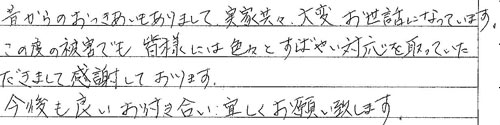 昔からのおつきあいもありまして、実家共々、大変お世話になっています。
この度の被害でも皆様には色々とすばやい対応を取っていた
だきまして感謝しております。
今後も良いお付き合い宜しくお願い致します。